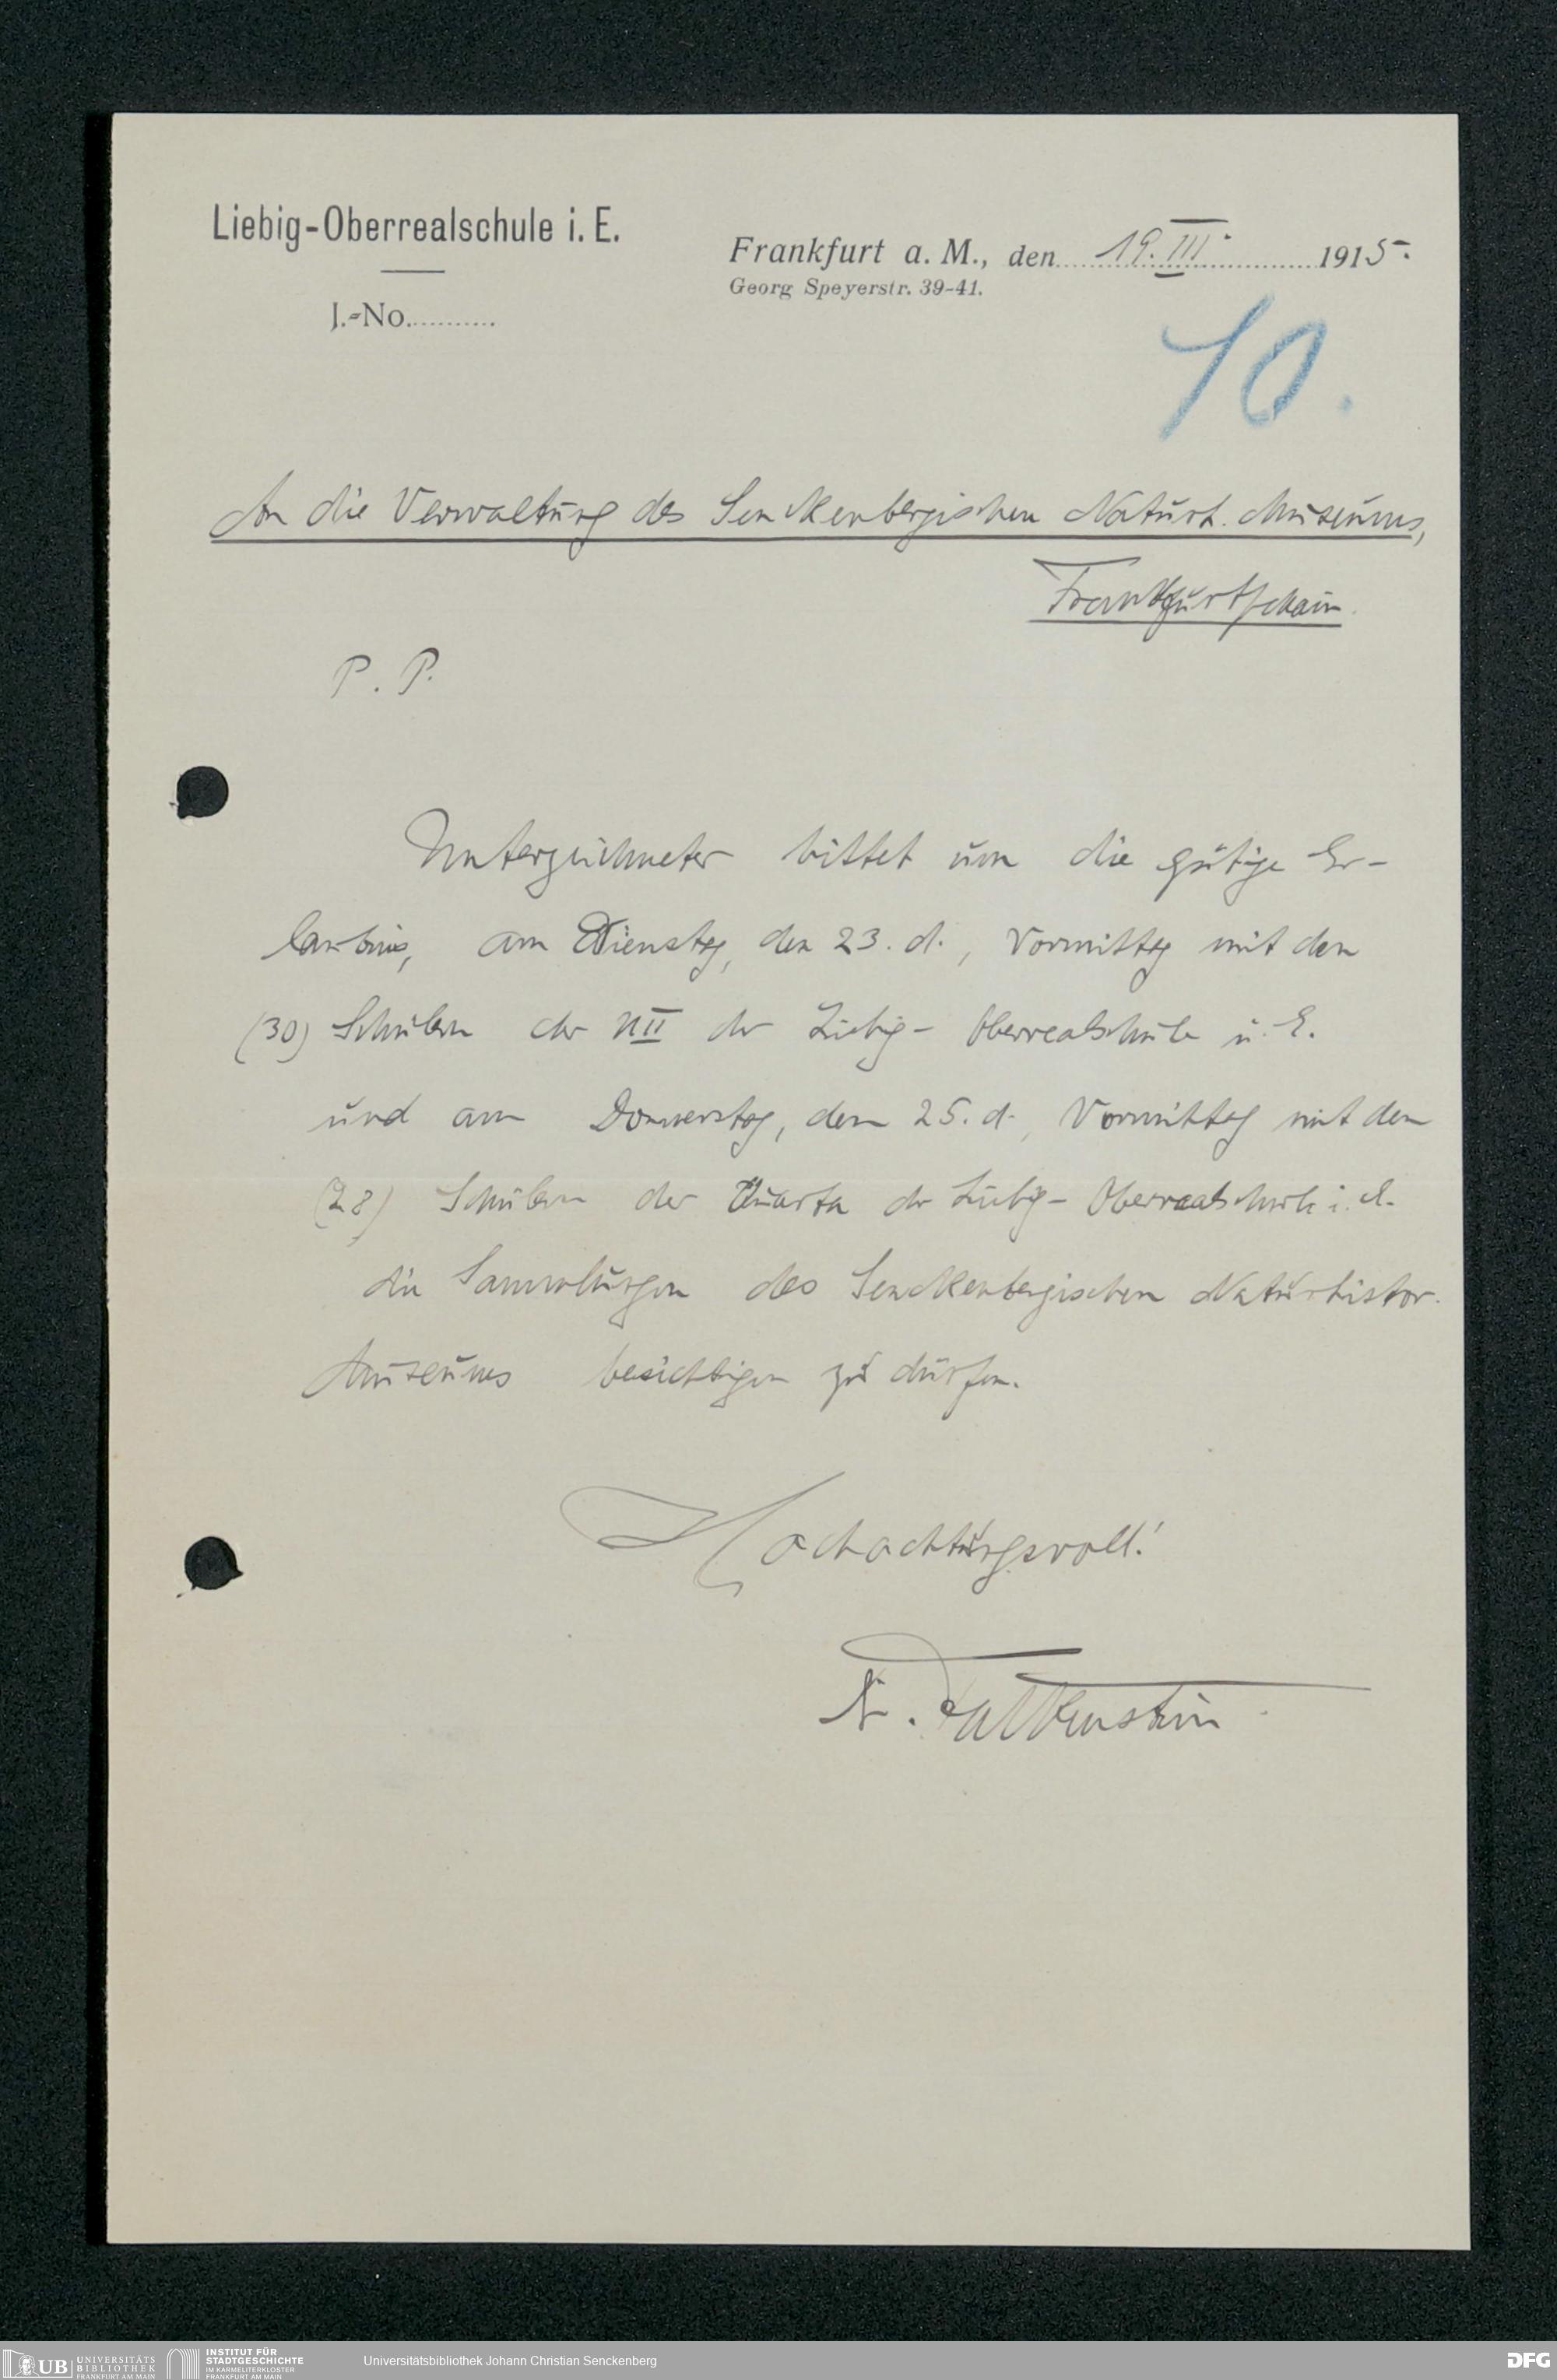 Liebig-Oberrealschule i. E.
Frankfurt a. M., den 19. III. 1915.
Georg Speyerstr. 39-41.
J.-No.
10.
An die Verwaltung des Senckenbergischen Naturh. Museums,
Frankfurt/Main.
P. P.
Unterzeichneter bittet um die gütige Er-
laubnis, am Dienstag, den 23. d., Vormittag mit den
(30) Schülern der UII der Liebig- Oberrealschule i. E.
und am Donnerstag, dem 25. d., Vormittag mit den
(28) Schülern der Quarta der Liebig- Oberrealschule i. E.
die Sammlungen des Senckenbergischen Naturhistor.
Museums besichtigen zu dürfen.
Hochachtungsvoll!
Falkenstein.
UB UNIVERSITÄTS
BIBLIOTHEK
FRANKFURT AM MAIN
INSTITUT FÜR
STADTGESCHICHTE
IM KARMELITERKLOSTER
FRANKFURT AM MAIN
Universitätsbibliothek Johann Christian Senckenberg
DFG